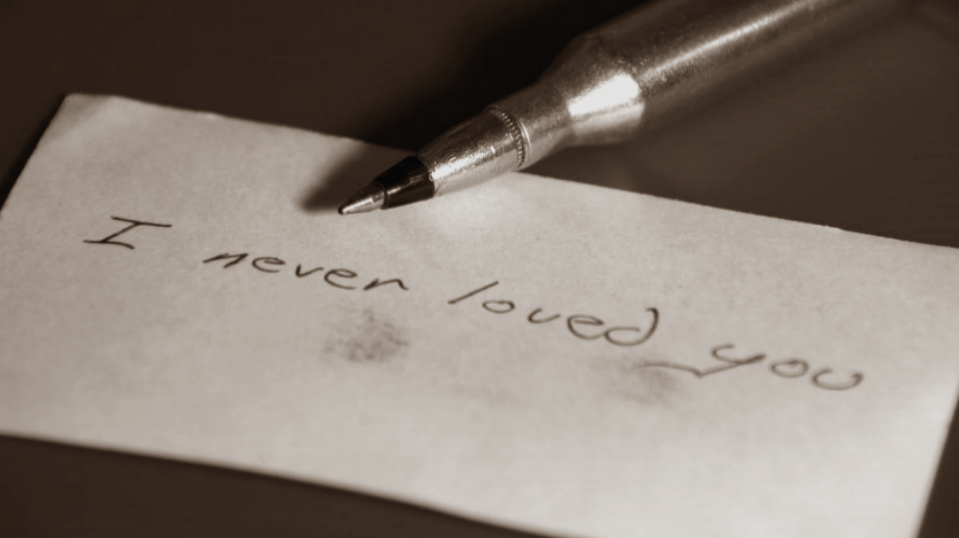 I never loved you